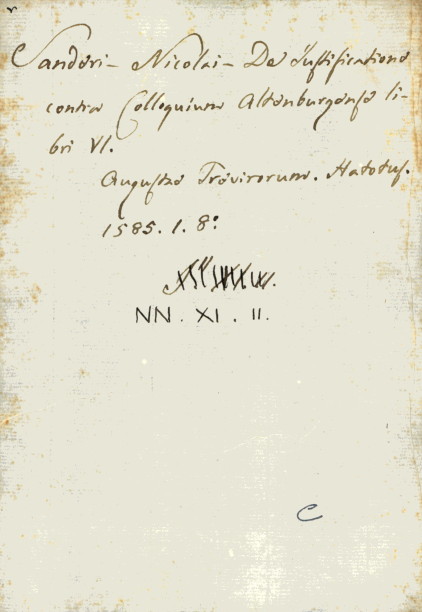 Sanderi - Nicolai - De Justificatione
contra Colloquium Altenburgense li-
bri VI.
Augustae Trevirorum. Hatotus.
1585. 1. 8:
NN. XI. II.
C